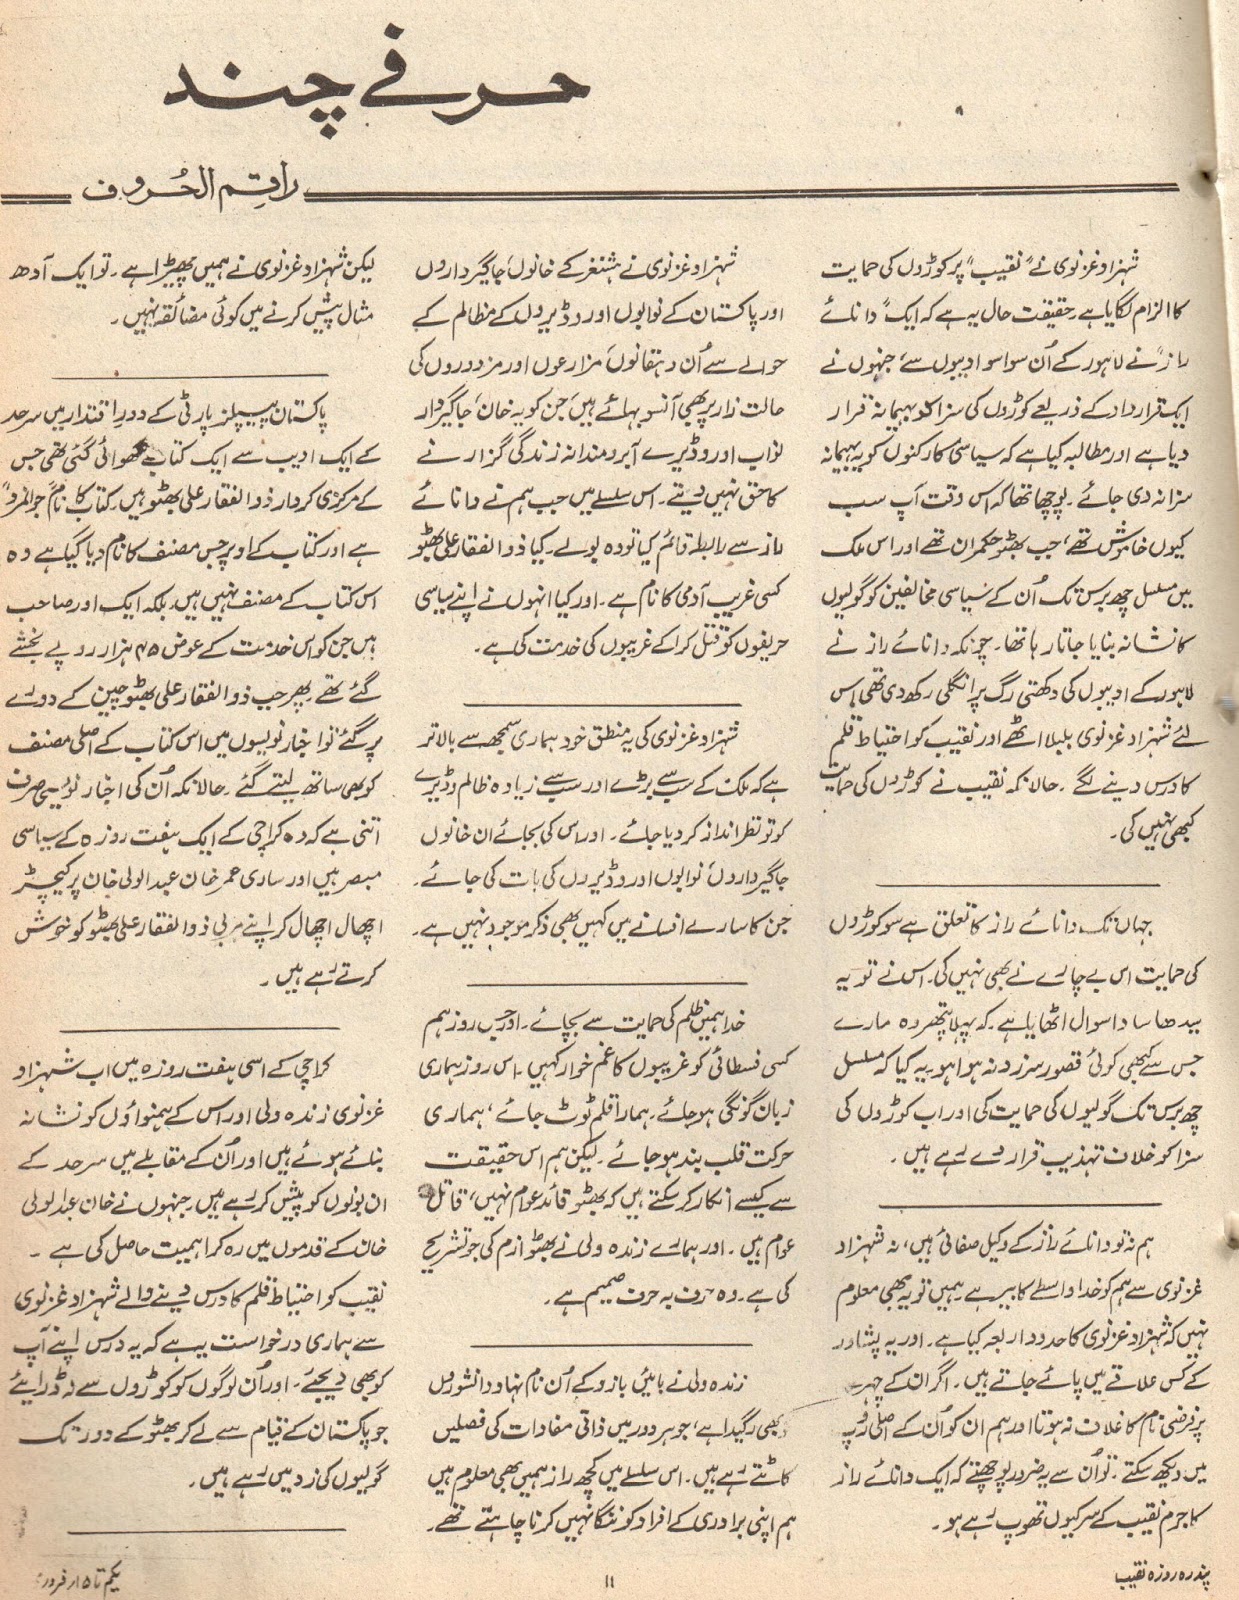 حرفے چند
راقم الحُروف
شہزاد غزنوی نے "نقیب" پر کوڑوں کی حمایت
کا الزام لگایا ہے۔ حقیقت حال یہ ہے کہ ایک "دانائے
راز" نے لاہور کے اُن سوا سو ادیبوں سے، جنہوں نے
ایک قرارداد کے ذریعے کوڑوں کی سزا کو بہیمانہ قرار
دیا ہے اور مطالبہ کیا ہے کہ سیاسی کارکنوں کو یہ بہیمانہ
سزا نہ دی جائے۔ پوچھا تھا کہ اس وقت آپ سب
کیوں خاموش تھے، جب بھٹو حکمران تھے اور اس ملک
میں مسلسل چھ برس تک اُن کے سیاسی مخالفین کو گولیوں
کا نشانہ بنایا جاتا رہا تھا۔ چونکہ دانائے راز نے
لاہور کے ادیبوں کی دکھتی رگ پر انگلی رکھ دی تھی اس
لئے شہزاد غزنوی بلبلا اٹھے اور نقیب کو احتیاط قلم
کا درس دینے لگے۔ حالانکہ نقیب نے کوڑوں کی حمایت
کبھی نہیں کی۔
جہاں تک دانائے راز کا تعلق ہے سو کوڑوں
کی حمایت اس بے چارے نے بھی نہیں کی۔ اس نے تو یہ
سیدھا سادا سوال اٹھایا ہے۔ کہ پہلا پتھر وہ مارے
جس سے کبھی کوئی قصور سرزد نہ ہوا ہو۔ یہ کیا کہ مسلسل
چھ برس تک گولیوں کی حمایت کی اور اب کوڑوں کی
سزا کو خلاف تہذیب قرار دے رہے ہیں۔
ہم نہ تو دانائے راز کے وکیل صفائی ہیں، نہ شہزاد
غزنوی سے ہم کو خدا واسطے کا بیر ہے۔ ہمیں تو یہ بھی معلوم
نہیں کہ شہزاد غزنوی کا حدود اربعہ کیا ہے۔ اور یہ پشاور
کے کس علاقے میں پائے جاتے ہیں۔ اگر ان کے چہرے
پر فرضی نام کا غلاف نہ ہوتا اور ہم ان کو اُن کے اصلی روپ
میں دیکھ سکتے۔ تو اُن سے یہ ضرور پوچھتے کہ ایک دانائے راز
کا جرم نقیب کے سر کیوں تھوپ رہے ہو۔
شہزاد غزنوی نے ہشنغر کے خانوں، جاگیرداروں
اور پاکستان کے نوابوں اور وڈیروں کے مظالم کے
حوالے سے اُن دہقانوں، مزارعوں اور مزدوروں کی
حالت زار پر بھی آنسو بہائے ہیں، جن کو یہ خان، جاگیردار
نواب اور وڈیرے آبرومندانہ زندگی گزارنے
کا حق نہیں دیتے۔ اس سلسلے میں جب ہم نے دانائے
راز سے رابطہ قائم کیا تو وہ بولے۔ کیا ذوالفقار علی بھٹو
کسی غریب آدمی کا نام ہے۔ اور کیا انہوں نے اپنے سیاسی
حریفوں کو قتل کرا کے غریبوں کی خدمت کی ہے۔
شہزاد غزنوی کی یہ منطق خود ہماری سمجھ سے بالاتر
ہے کہ ملک کے سب سے بڑے اور سب سے زیادہ ظالم وڈیرے
کو تو نظر انداز کر دیا جائے۔ اور اس کی بجائے ان خانوں
جاگیرداروں، نوابوں اور وڈیروں کی بات کی جائے۔
جن کا سارے افسانے میں کہیں بھی ذکر موجود نہیں ہے۔
خدا ہمیں ظلم کی حمایت سے بچائے۔ اور جس روز ہم
کسی فسطائی کو غریبوں کا غم خوار کہیں۔ اس روز ہماری
زبان گونگی ہو جائے۔ ہمارا قلم ٹوٹ جائے، ہماری
حرکت قلب بند ہو جائے۔ لیکن ہم اس حقیقت
سے کیسے انکار کر سکتے ہیں کہ بھٹو قائد عوام نہیں، قاتل
عوام ہیں۔ اور ہمارے زندہ ولی نے بھٹو ازم کی جو تشریح
کی ہے۔ وہ حرف بہ حرف صمیم ہے۔
زندہ ولی نے بائیں بازو کے اُن نام نہاد دانشوروں
کو بھی رگیدا ہے، جو ہر دور میں ذاتی مفادات کی فصلیں
کاٹتے رہے ہیں۔ اس سلسلے میں کچھ راز ہمیں بھی معلوم ہیں
ہم اپنی برادری کے افراد کو ننگا نہیں کرنا چاہتے تھے۔
لیکن شہزاد غزنوی نے ہمیں چھیڑا ہے۔ تو ایک آدھ
مثال پیش کرنے میں کوئی مضائقہ نہیں۔
پاکستان پیپلز پارٹی کے دور اقتدار میں سرحد
کے ایک ادیب سے ایک کتاب لکھوائی گئی تھی جس
کے مرکزی کردار ذوالفقار علی بھٹو ہیں۔ کتاب کا نام "جوانمرد"
ہے اور کتاب کے اوپر جس مصنف کا نام دیا گیا ہے وہ
اس کتاب کے مصنف نہیں ہیں۔ بلکہ ایک اور صاحب
ہیں جن کو اس خدمت کے عوض ۴۵ ہزار روپے بخشے
گئے تھے۔ پھر جب ذوالفقار علی بھٹو چین کے دورے
پر گئے تو اخبار نویسوں میں اس کتاب کے اصلی مصنف
کو بھی ساتھ لیتے گئے۔ حالانکہ اُن کی اخبار نویسی صرف
اتنی ہے کہ وہ کراچی کے ایک ہفت روزہ کے سیاسی
مبصر ہیں اور ساری عمر خان عبدالولی خان پر کیچڑ
اچھال اچھال کر اپنے مربی ذوالفقار علی بھٹو کو خوش
کرتے رہے ہیں۔
کراچی کے اسی ہفت روزہ میں اب شہزاد
غزنوی زندہ ولی اور اس کے ہمنواؤں کو نشانہ
بنائے ہوئے ہیں اور اُن کے مقابلے میں سرحد کے
ان بونوں کو پیش کر رہے ہیں۔ جنہوں نے خان عبدالولی
خان کے قدموں میں رہ کر اہمیت حاصل کی ہے۔
نقیب کو احتیاط قلم کا درس دینے والے شہزاد غزنوی
سے ہماری درخواست یہ ہے کہ یہ درس اپنے آپ
کو بھی دیجئے۔ اور اُن لوگوں کو کوڑوں سے نہ ڈرائیے
جو پاکستان کے قیام سے لے کر بھٹو کے دور تک
گولیوں کی زد میں رہے ہیں۔
پندرہ روزہ نقیب
۱۱
یکم تا ۱۵ر فروری